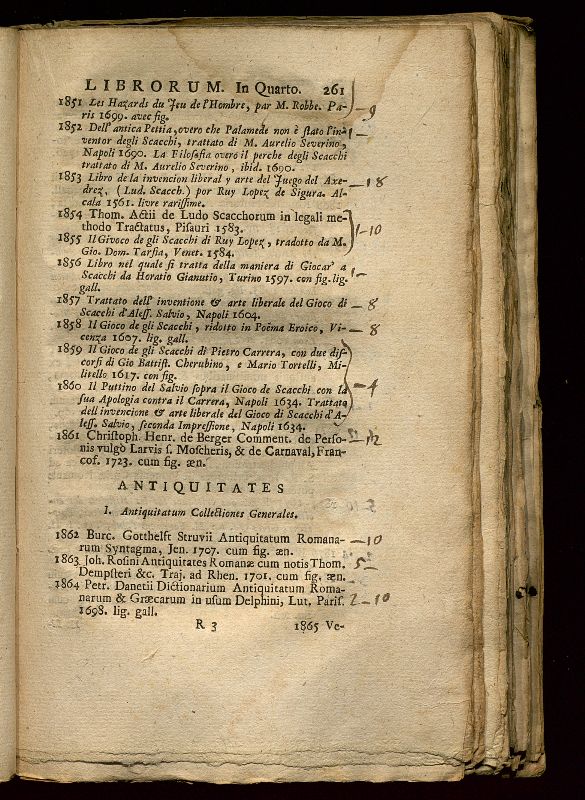 LIBRORUM. In Quarto. 261
1851 Les Hazards du Jeu de l'Hombre, par M. Robbe. Pa-
ris 1699. avec fig. — 9
1852 Dell'antica Pettia, overo che Palamede non è ſtato l'in-
ventor degli Scacchi, trattato di M. Aurelio Severino, 1 —
Napoli 1690. La Filoſofia overo il perche degli Scacchi
trattato di M. Aurelio Severino, ibid. 1690.
1853 Libro de la invencion liberal y arte del Juego del Axe-
drez, (Lud. Scacch.) por Ruy Lopez de Sigura. Al- — 18
cala 1561. livre rariſſime.
1854 Thom. Actii de Ludo Scacchorum in legali me-
thodo Tractatus, Piſauri 1583. 1 — 10
1855 Il Givoco de gli Scacchi di Ruy Lopez, tradotto da M.
Gio. Dom. Tarſia, Venet. 1584.
1856 Libro nel quale ſi tratta della maniera di Giocar' a
Scacchi da Horatio Gianutio, Turino 1597. con fig. lig. 1 —
gall.
1857 Trattato dell' inventione & arte liberale del Gioco di
Scacchi d'Aleſſ. Salvio, Napoli 1604. — 8
1858 Il Gioco de gli Scacchi, ridotto in Poëma Eroico, Vi-
cenza 1607. lig. gall. — 8
1859 Il Gioco de gli Scacchi di Pietro Carrera, con due diſ-
corſi di Gio Battiſt. Cherubino, e Mario Tortelli, Mi-
litello 1617. con fig.
1860 Il Puttino del Salvio ſopra il Gioco de Scacchi con la — 4
ſua Apologia contra il Carrera, Napoli 1634. Trattato
dell invencione & arte liberale del Gioco di Scacchi d'A-
leſſ. Salvio, ſeconda Impreſſione, Napoli 1634.
1861 Chriſtoph. Henr. de Berger Comment. de Perſo-
nis vulgò Larvis ſ. Moſcheris, & de Carnaval, Fran-
cof. 1723. cum fig. æn.
ANTIQUITATES
I. Antiquitatum Collectiones Generales.
1862 Burc. Gotthelft Struvii Antiquitatum Romana- — 10
rum Syntagma, Jen. 1707. cum fig. æn.
1863 Joh. Roſini Antiquitates Romanæ cum notis Thom. 5 —
Dempſteri &c. Traj. ad Rhen. 1701. cum fig. æn.
1864 Petr. Danetii Dictionarium Antiquitatum Roma-
narum & Græcarum in uſum Delphini, Lut. Pariſ. 2 — 10
1698. lig. gall.
R 3 1865 Ve-